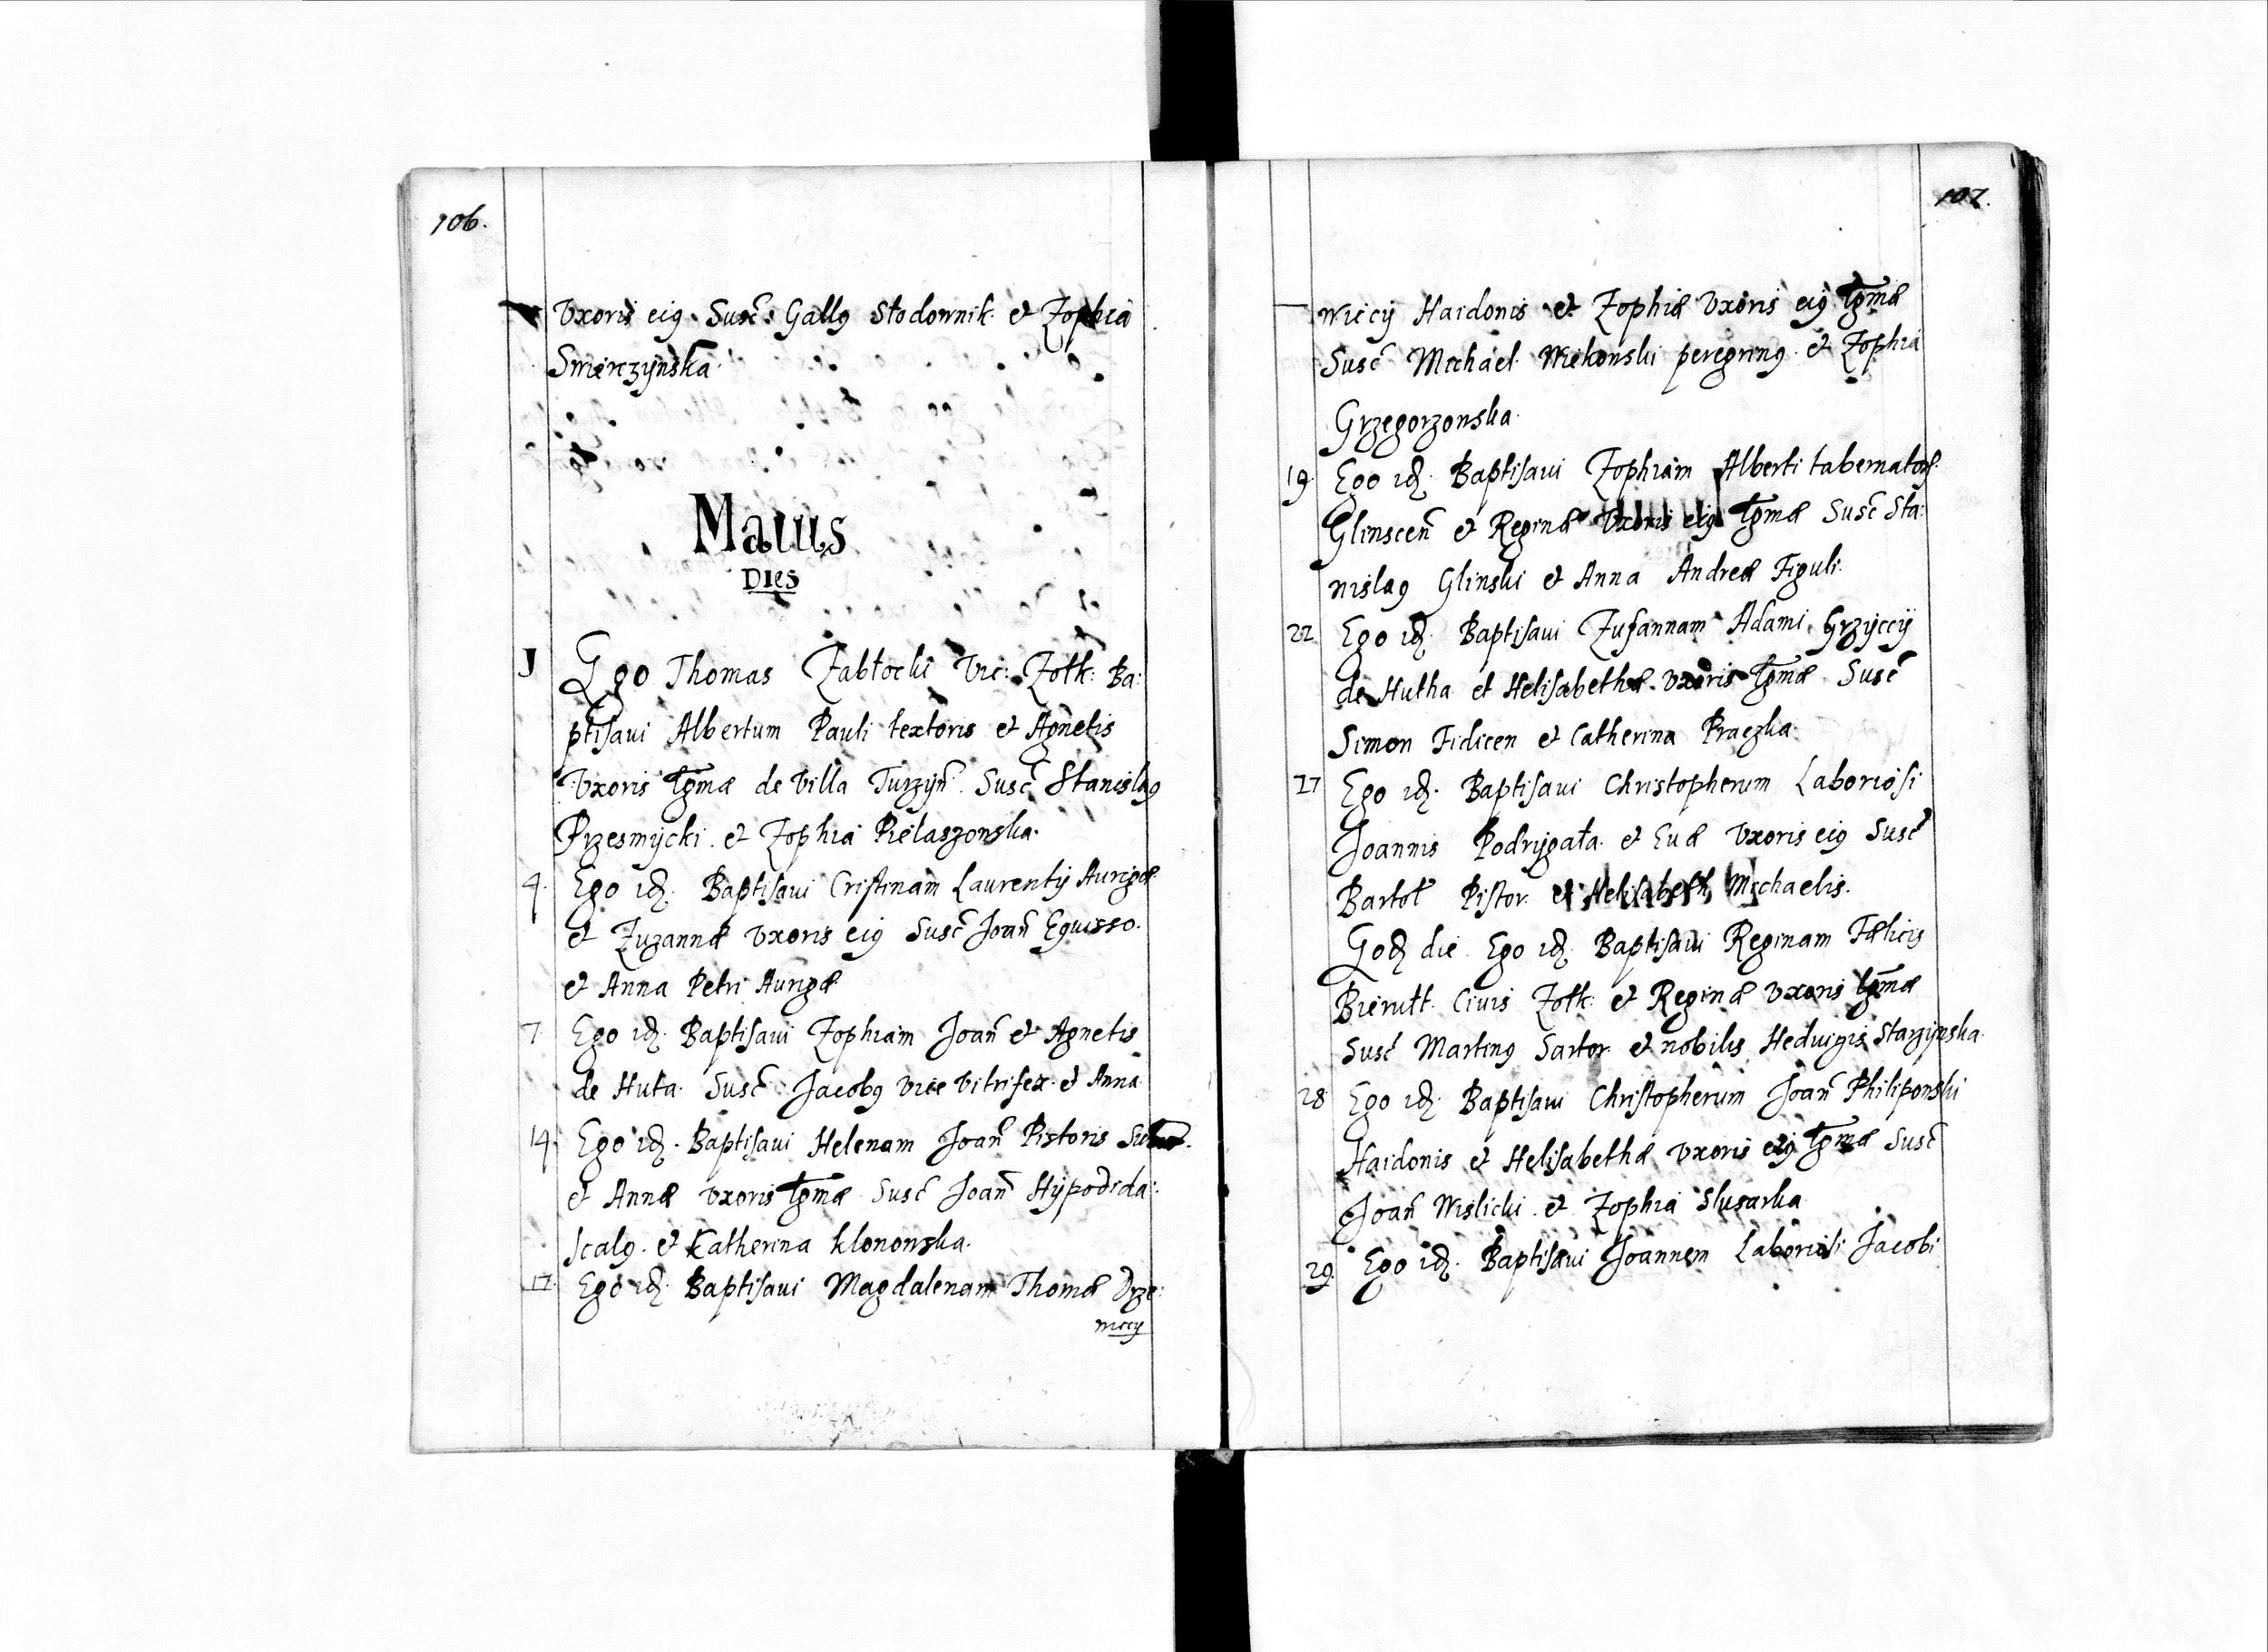 106.
Vxoris eiꝰ Susc̃ Gallꝰ Słodownik et Zophia
Swierczÿnska
Maius
Dies
1 Ego Thomas Zabłocki Vic: Zołk: Ba:
ptisaui Albertum Pauli textoris et Agnetis
Vxoris lgm̃æ de Villa Turzÿn̄ Susc̃ Stanislaꝰ
Przesmÿcki et Zophia Pielaszowska
4. Ego id Baptisaui Cristinam Laurentÿ Aurigæ
et Zuzannæ Vxoris eiꝰ Susc̃ Joan̄
et Anna Petri Aurigæ
7 Ego id Baptisaui Zophiam Joan̄ et Agnetis
de Huta Susc̃ Jacobꝰ vice Vitrifex et Anna
14. Ego id Baptisaui Helenam Joan̄ Pistoris
et Annæ vxoris lgm̃æ Susc̃ Joan̄ Hÿpodida:
scalꝰ et Katherina Klonowska
17. Ego id Baptisaui Magdalenam Thomæ Drze:
wiccÿ
107.
wiccÿ Haidonis et Zophiæ Vxoris eiꝰ lgm̃æ
Susc̃ Michael Wiekowski peregrinꝰ et Zophia
Grzegorzowska
19. Ego id Baptisaui Zophiam Alberti tabernator
Glinscen̄ et Reginæ Vxoris eiꝰ lgm̃æ Susc̃ Sta:
nislaꝰ Glinski et Anna Andreæ Figuli
22 Ego id Baptisaui Zusannam Adami Grzÿccÿ
de Hutha et Helisabethæ vxoris lgm̃æ Susc̃
Simon Fidicen et Catherina Praczka
27 Ego id Baptisaui Christopherum Laboriosi
Joannis Podrÿgała et Euæ Vxoris eiꝰ Susc̃
Bartoł Pistor et Helisabeth Michaelis
Eod die Ego id Baptisaui Reginam Fælicis
Bierutt Ciuis Zołk: et Reginæ Vxoris lgm̃æ
Susc̃ Martinꝰ Sartor et nobilis Heduigis Starzÿnska
28 Ego id Baptisaui Christopherum Joan̄ Philipowski
Haidonis et Helisabethæ vxoris eiꝰ lgm̃æ Susc̃
Joan̄ Wislicki et Zophia Slusarka
29. Ego id Baptisaui Joannem Laboriosi Jacobi